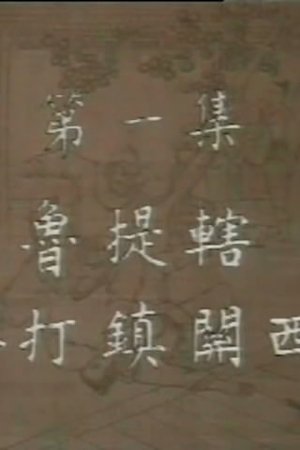 第一集
魯提轄
打鎮関西